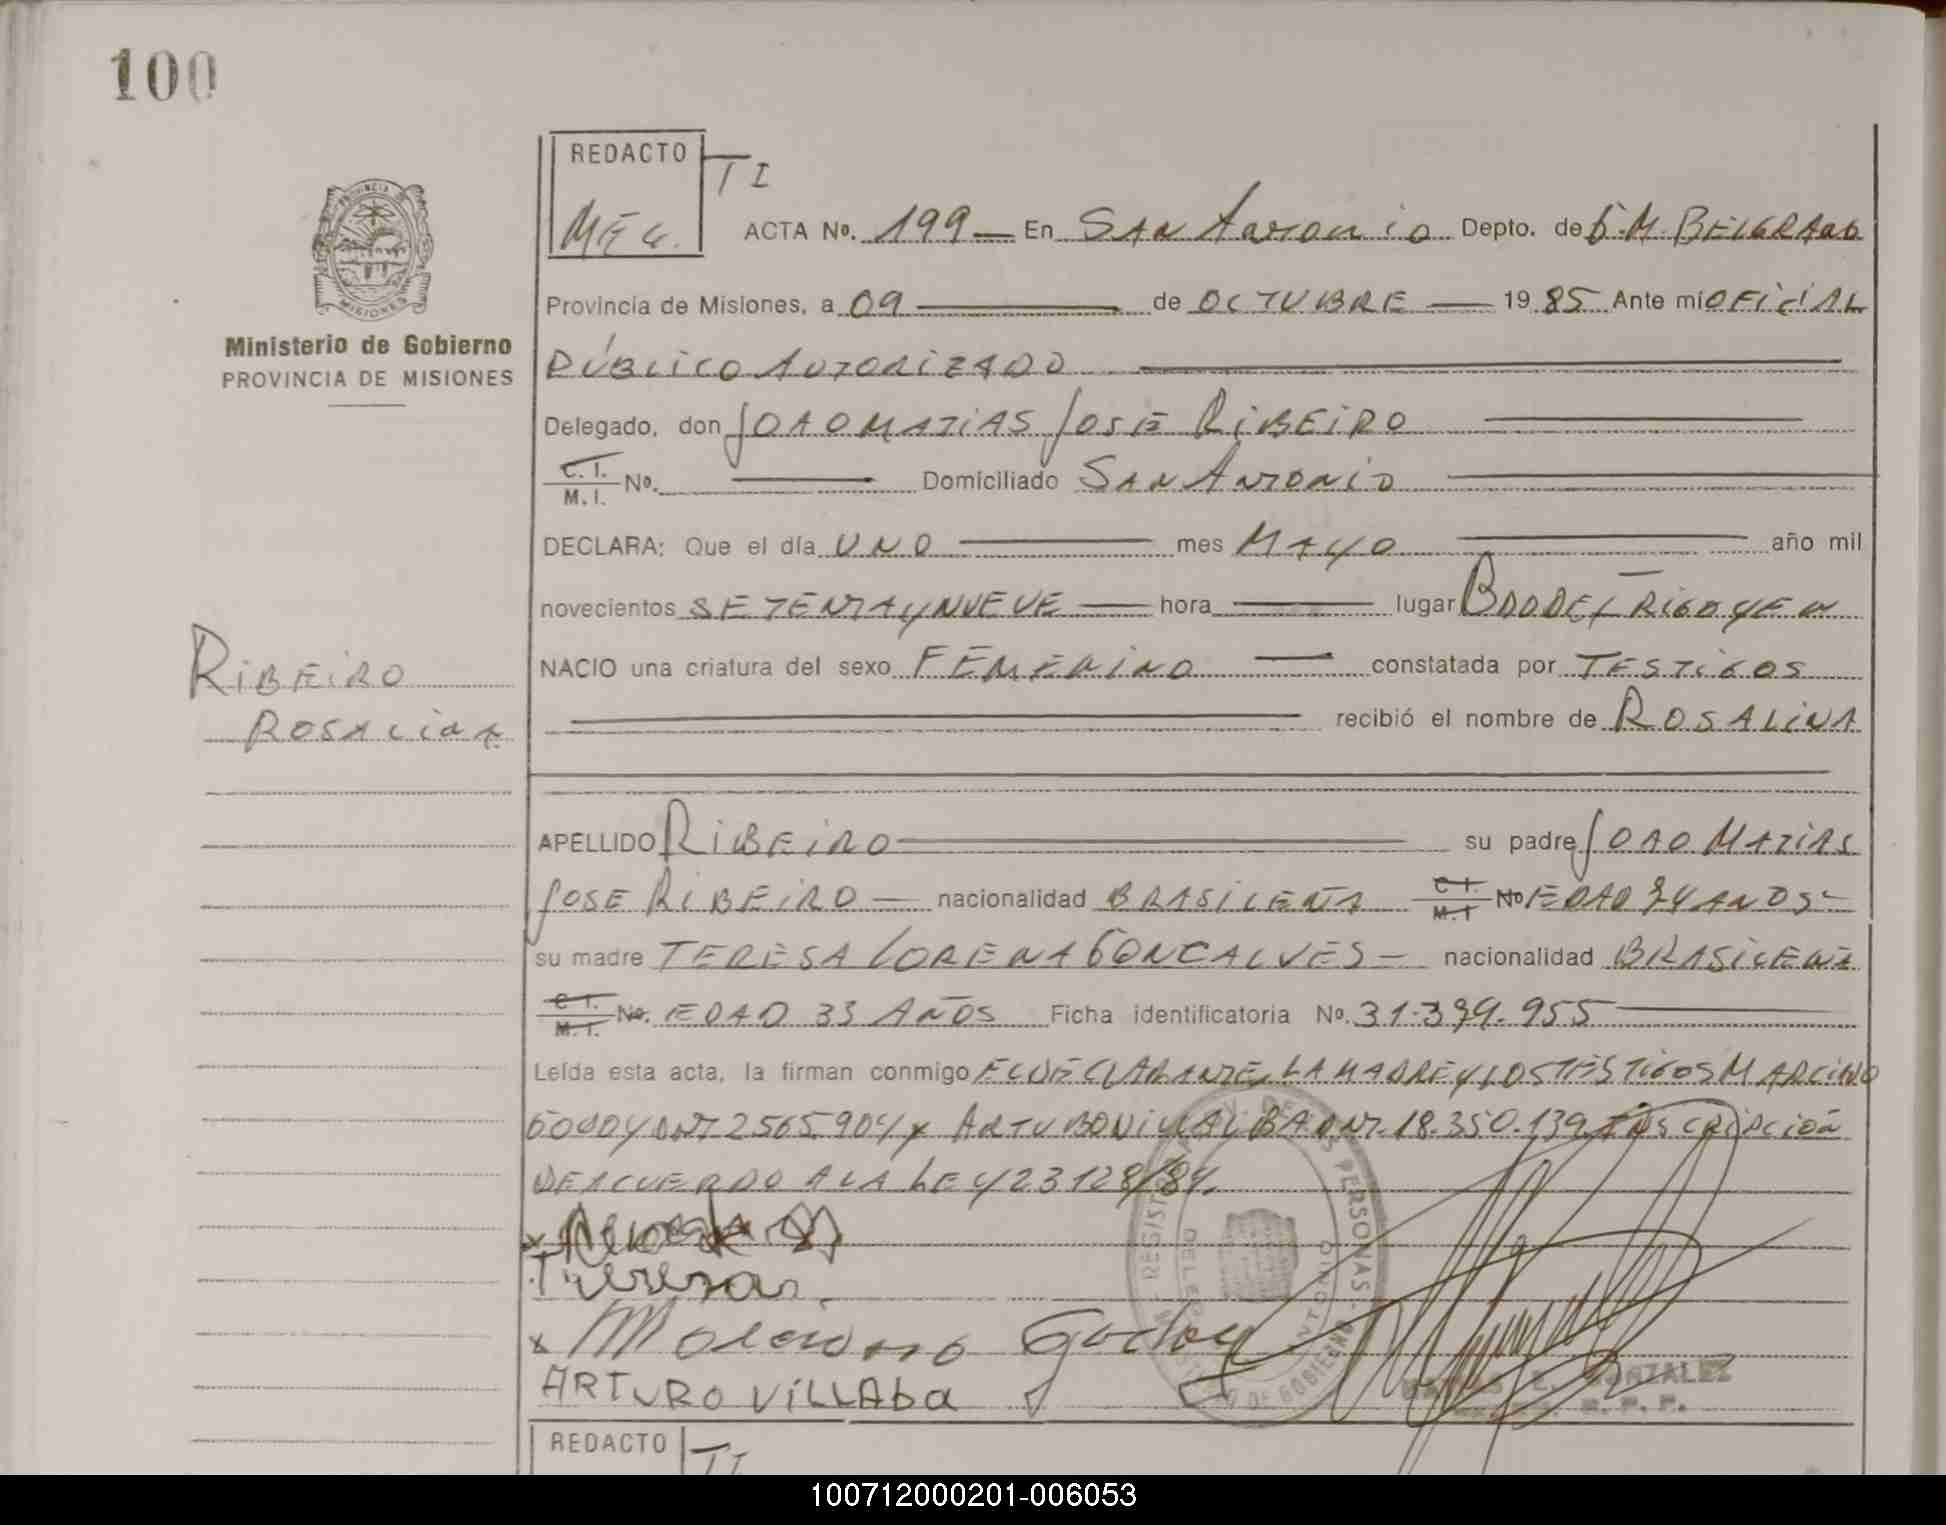 100
REDACTO TI
MEG.
ACTA No. 199 En SAN ANTONIO Depto. de G.M. BELGRANO
Provincia de Misiones, a 09 de OCTUBRE 1985 Ante mí OFICIAL
Ministerio de Gobierno
PROVINCIA DE MISIONES
PÚBLICO AUTORIZADO
Delegado, don JOAO MATIAS JOSE RIBEIRO
C.I. M.I. No. Domiciliado SAN ANTONIO
DECLARA: Que el día UNO mes MAYO año mil
novecientos SETENTA Y NUEVE hora lugar BDO DE IRIGOYEN
NACIO una criatura del sexo FEMENINO constatada por TESTIGOS
RIBEIRO
ROSALINA
recibió el nombre de ROSALINA
APELLIDO RIBEIRO su padre JOAO MATIAS
JOSE RIBEIRO nacionalidad BRASILEÑA C.I. M.I. No EDAD 34 AÑOS
su madre TERESA LORENA GONCALVES nacionalidad BRASILEÑA
C.I. M.I. No. EDAD 33 AÑOS Ficha identificatoria No. 31.399.955
Leída esta acta, la firman conmigo EL DECLARANTE, LA MADRE Y LOS TESTIGOS MARCINO
GODOY DNI 2565904 Y ARTURO VILLALBA DNI. 18.350.139. INSCRIPCIÓN
DE ACUERDO A LA LEY 23128/84.
Tereza
Marcino Godoy
ARTURO VILLAba
GONZALEZ
REDACTO TI
100712000201-006053